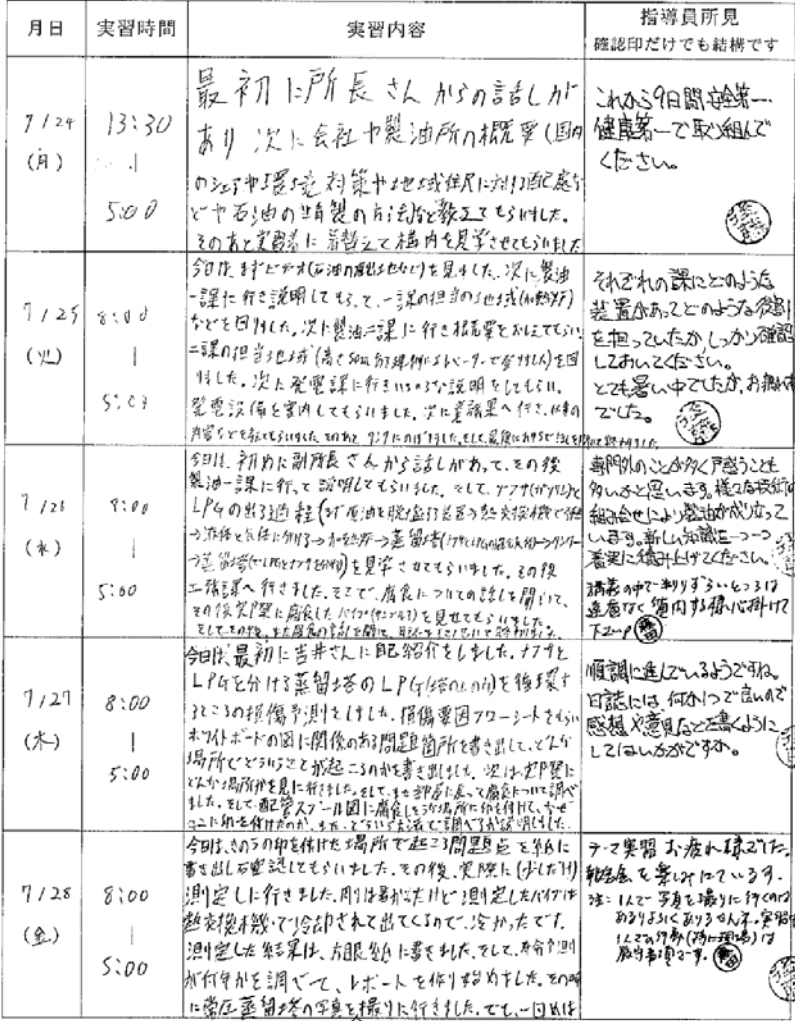 月日 実習時間 実習内容 指導員所見
確認印だけでも結構です
7/24
(月)
13:30
|
5:00
最初に所長さんからの話しが
あり 次に会社や製油所の概要(国内
のシェアや環境対策や地域住民に対する配慮な
どや石油の精製の方法)など教えてもらいました。
そのあと実習着に着替えて構内を見学させてもらいました
これから9日間安全第一…
健康第一で取り組んで
ください。
7/25
(火)
8:00
|
5:00
今日は、まずビデオ(石油の産出地など)を見ました。次に製油
一課に行き説明してもらって、一課の担当の地域
などを回りました。次に製油二課に行き概要をおしえてもらい
二課の担当地域(高さ50m エレベーターで登りました)を回
りました。次に発電課に行きいろいろな説明をしてもらい、
発電設備を案内してもらいました。次に 課へ行き、仕事の
内容などを教えてもらいました
それぞれの課にどのような
装置があってどのような役割
を担っていたか、しっかり確認
しておいてください。
とても暑い中でしたが、お疲れ様
でした。
7/26
(水)
8:00
|
5:00
今日は、初めに副所長さんから話しがあって、その後
製油一課に行って説明してもらいました。そして、ナフサ(ガソリン)と
LPGの出る過程(まず原油を脱塩する装置→熱交換機で
→蒸留塔
→蒸留塔 を見学させてもらいました。その後
工務課へ行きました。そこで、腐食についての話しを聞いて、
その後実際に腐食したパイプ(サンプル)を見せてもらいました
専門外のことが多く戸惑うことも
多いかと思います。様々な技術の
組み合せにより製油が成り立って
います。新しい知識を一つ一つ
着実に積み上げてください。
講義の中で判りずらいところは
遠慮なく質問する様心掛けて
下さい
7/27
(木)
8:00
|
5:00
今日は、最初に吉井さんに自己紹介をしました。ナフサと
LPGを分ける蒸留塔のLPG(塔の上の方)を循環す
るところの損傷予測をしました。損傷要因フローシートをもらい
ホワイトボードの図に関係のある問題箇所を書き出して、どんな
場所でどういうことが起こるのかを書き出しました。次は、実際に
どんな場所かを見に行きました。そして、また部屋に戻って腐食について調べ
ました。そして、配管スプール図に腐食しそうな場所に印を付けて、なぜ
そこに印を付けたのか、また、どういう方法で調べるか説明しました。
順調に進んでいるようですね。
日誌には、何か1つで良いので
感想や意見などを書くように
してはいかがですか。
7/28
(金)
8:00
|
5:00
今日は、きのうの印を付けた場所で起こる問題点を紙に
書き出し確認してもらいました。その後、実際に(少しだけ)
測定しに行きました。周りは暑かったけど測定したパイプは
熱交換機で冷却されて出てくるので、冷かったです。
測定した結果は、方眼紙に書きました。そして、寿命予測
が何年かを調べて、レポートを作り始めました。その時
に常圧蒸留塔の写真を撮りに行きました。でも、一回めは
テーマ実習 お疲れ様でした。
報告会を楽しみにしています。
注:1人で写真を撮りに行くのは
あまりよくありませんネ。実習中
1人での行動(特に現場)は
禁止事項です。